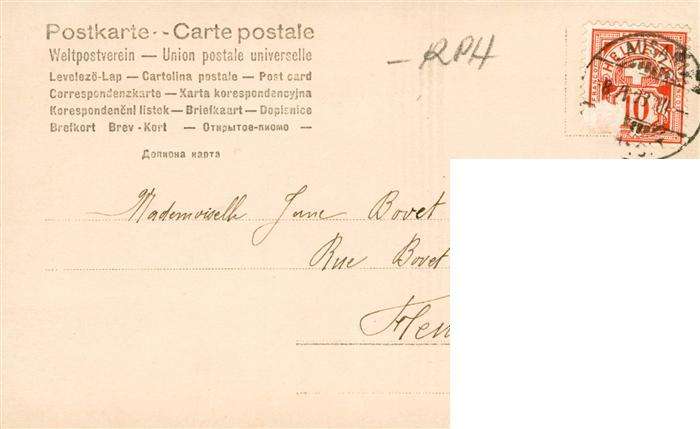 Postkarte -- Carte postale
Weltpostverein — Union postale universelle
Levelező-Lap — Cartolina postale — Post card
Correspondenzkarte — Karta korespondencyjna
Korespondenční listek — Briefkaart — Dopisnice
Brefkort Brev-Kort — Открытое-писмо —
Дописна карта
— RPH
10
Mademoiselle Jane Bovet
Rue Bovet
Fleu